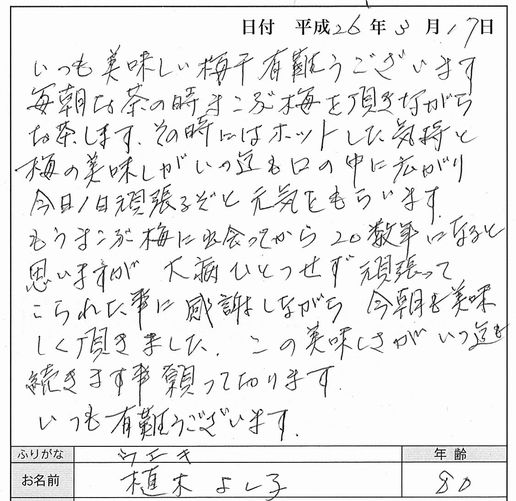 日付 平成26年3月17日
いつも美味しい梅干有難うございます
毎朝お茶の時まこぶ梅を頂きながら
お茶します。その時にはホットした気持と
梅の美味しがいつ迄も口の中に広がり
今日1日頑張るぞと元気をもらいます。
もうまこぶ梅に出会ってから20数年になると
思いますが 大病ひとつせず 頑張って
こられた事に感謝しながら 今朝も美味
しく頂きました。この美味しさがいつ迄も
続きます事願って居ります。
いつも有難うございます。
ふりがな ウエキ 年齢
お名前 植木よし子 80